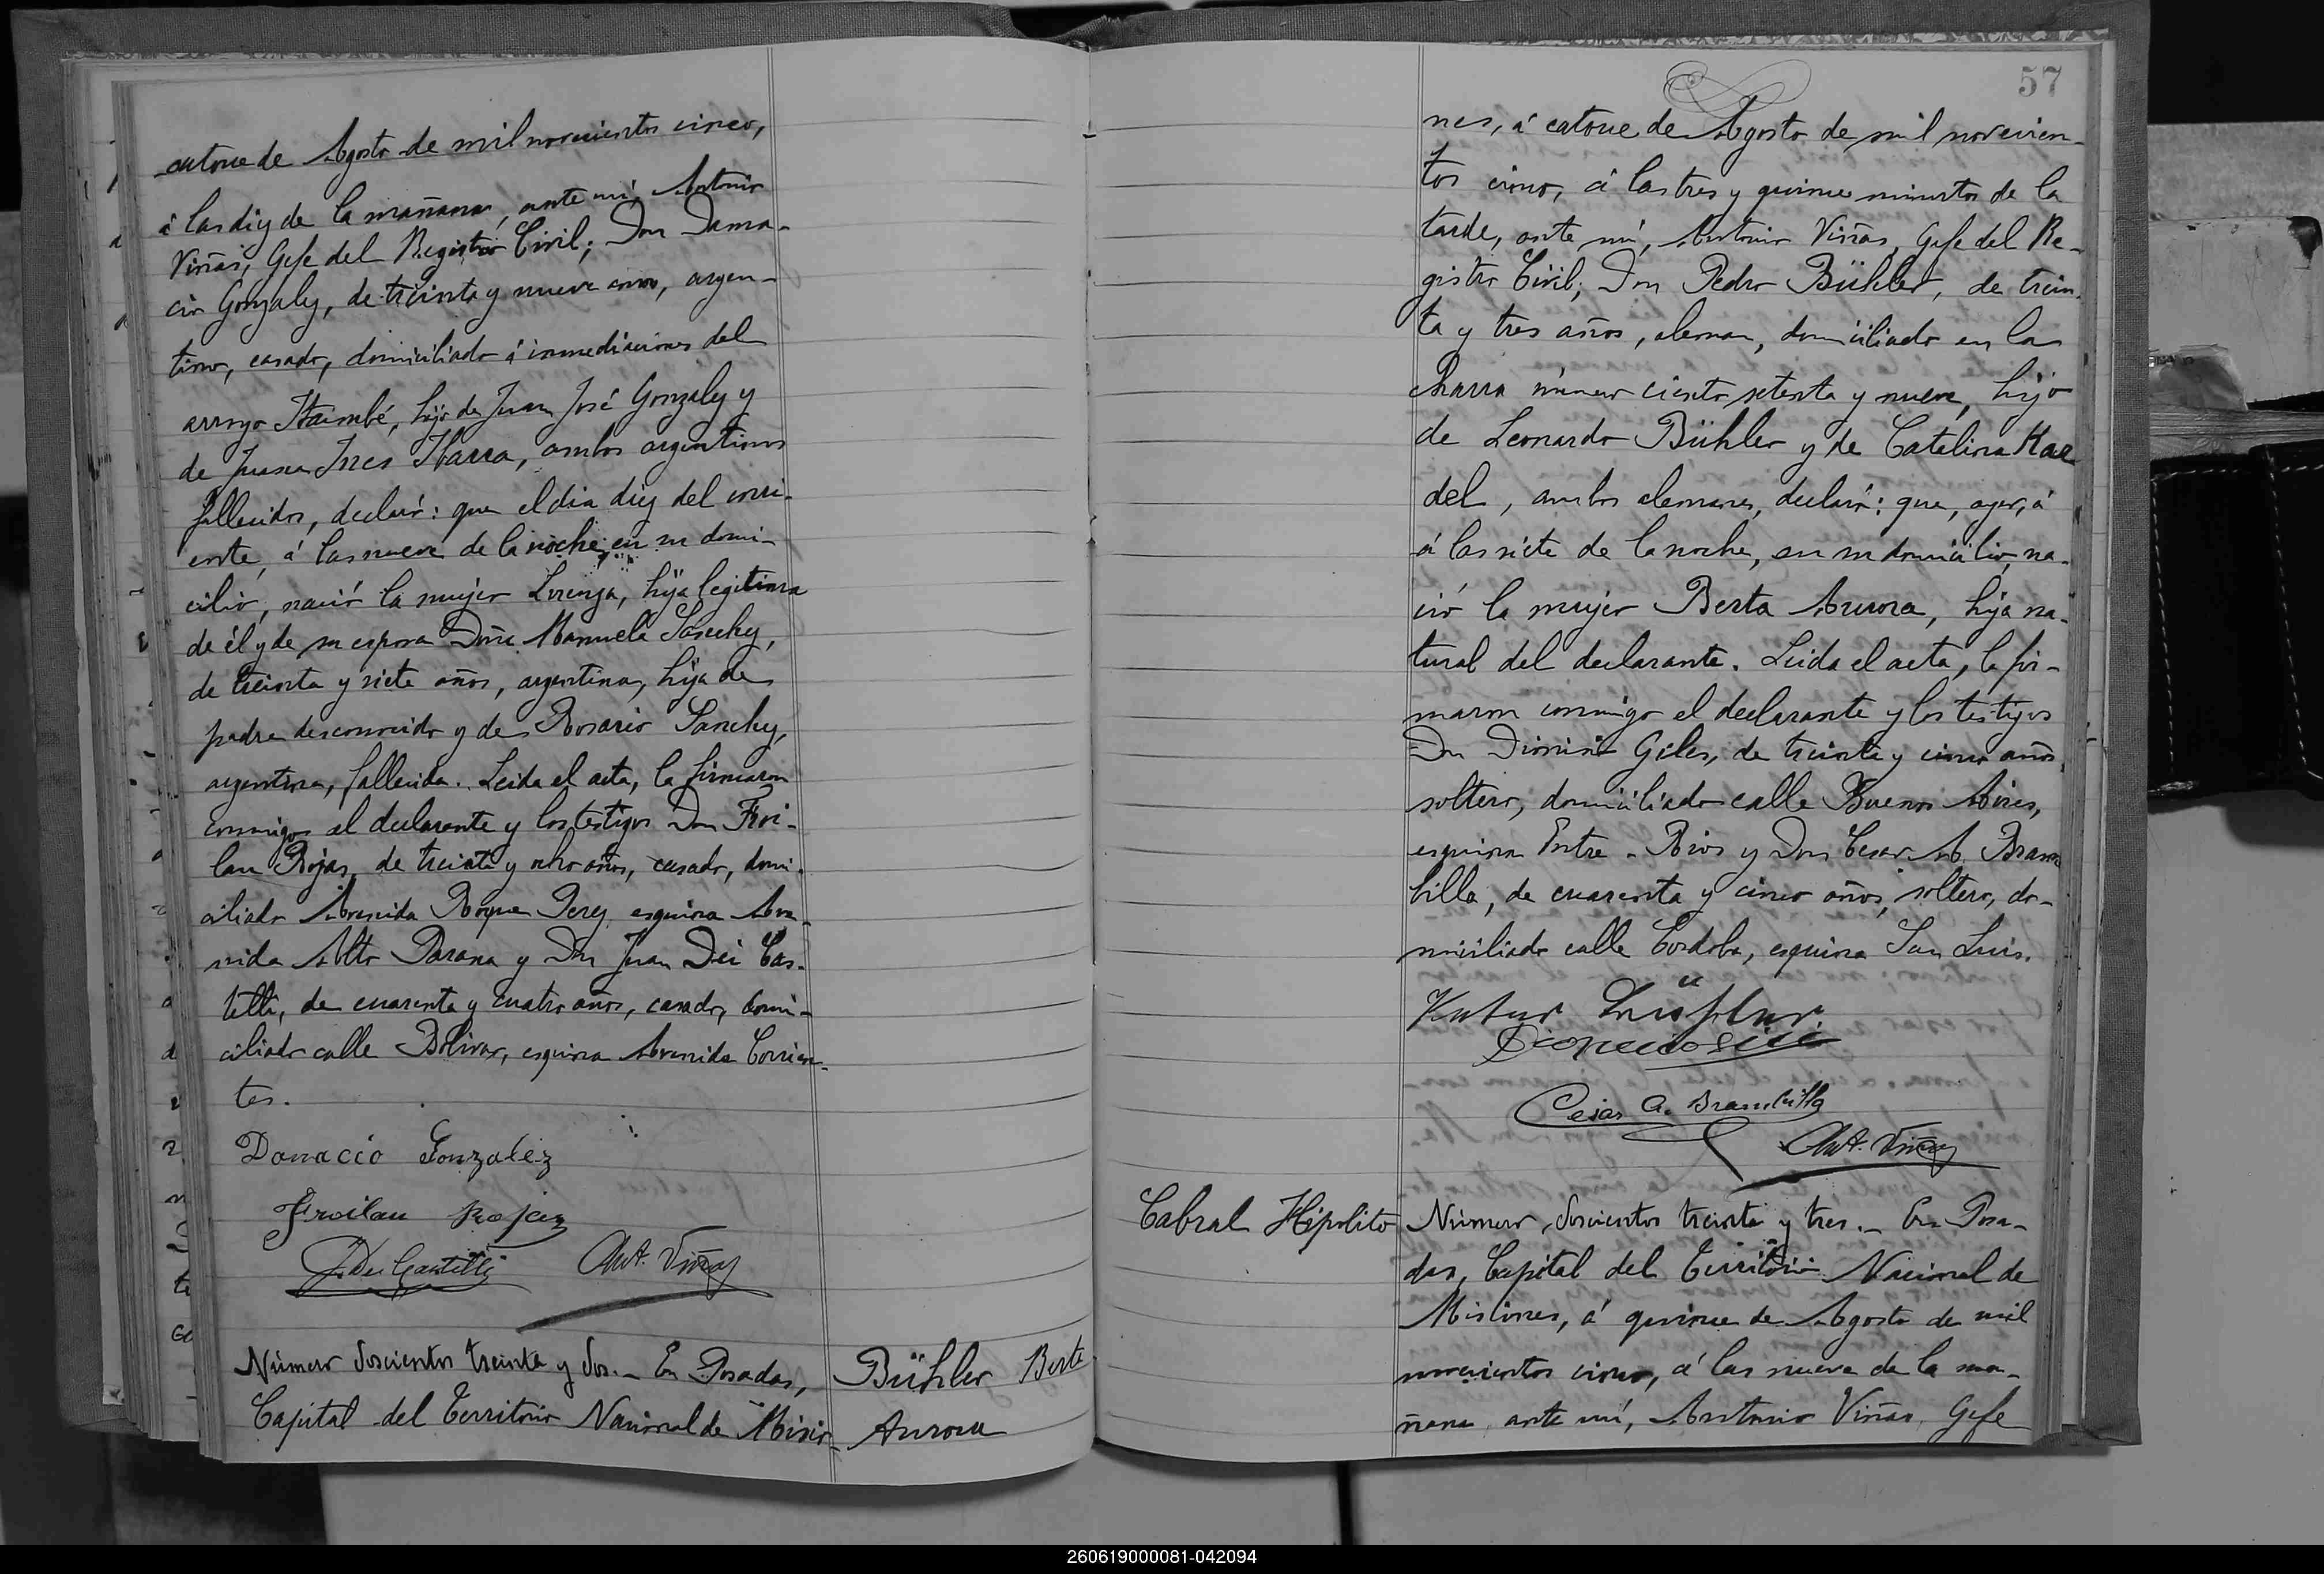 catorce de Agosto de mil novecientos cinco,
á las diez de la mañana, ante mí, Antonio
Viñas, Gefe del Registro Civil; Don Dama-
cio Gonzalez, de treinta y nueve años, argen-
tino, casado, domiciliado á inmediaciones del
arroyo Itaimbé, hijo de Juan José Gonzalez y
de Juana Ines Ibarra, ambos argentinos
fallecidos, declaró: que el dia diez del corri-
ente, á las nueve de la noche, en su domi-
cilio, nació la mujer Lorenza, hija legitima
de él y de su esposa Doña Manuela Sanchez,
de treinta y siete años, argentina, hija de
padre desconocido y de Rosario Sanchez,
argentina, fallecida. Leida el acta, la firmaron
conmigo el declarante y los testigos Don Froi-
lan Rojas, de treinta y ocho años, casado, domi-
ciliado Avenida Roque Perez esquina Ave-
nida Alto Parana y Don Juan Dei Cas-
telli, de cuarenta y cuatro años, casado, domi-
ciliado calle Bolivar, esquina Avenida Corrien-
tes.
Damacio Gonzalez
Froilan Rojas
J. Dei Castelli Ant. Viñas
Número doscientos treinta y dos.- En Posadas,
Capital del Territorio Nacional de Misio-
Bühler Berta
Aurora
57
nes, á catorce de Agosto de mil novecien-
tos cinco, á las tres y quince minutos de la
tarde, ante mí, Antonio Viñas, Gefe del Re-
gistro Civil; Don Pedro Bühler, de trein-
ta y tres años, aleman, domiciliado en la
chacra número ciento setenta y nueve, hijo
de Leonardo Bühler y de Catalina Kae
del, ambos alemanes, declaró: que, ayer, á
á las siete de la noche, en su domicilio, na-
ció la mujer Berta Aurora, hija na-
tural del declarante. Leida el acta, la fir-
maron conmigo el declarante y los testigos
Don Dionisio Giles, de treinta y cinco años,
soltero, domiciliado calle Buenos Aires,
esquina Entre-Rios y Don Cesar A. Bram
billa, de cuarenta y cinco años, soltero, do-
miciliado calle Cordoba, esquina San Luis.
Cesar A. Brambilla
Ant. Viñas
Cabral Hipólito
Número doscientos treinta y tres.- En Posa-
das, Capital del Territorio Nacional de
Misiones, á quince de Agosto de mil
novecientos cinco, á las nueve de la ma-
ñana, ante mí, Antonio Viñas, Gefe
260619000081-042094